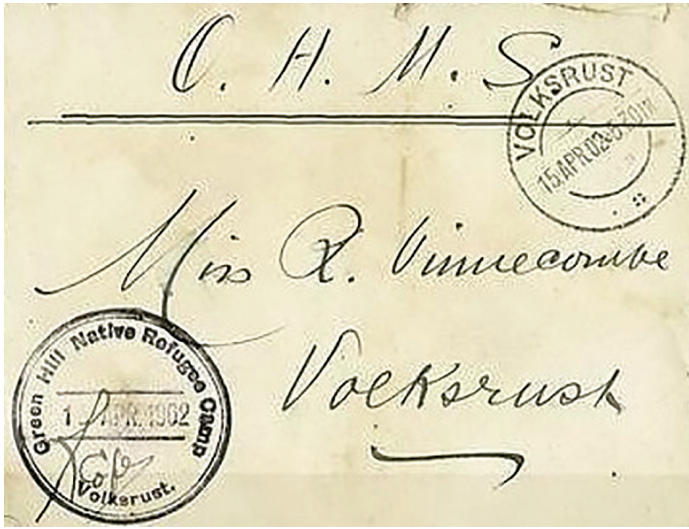 O. H. M. S.
VOLKSRUST
15 APR 02
Miss R. Vinnecombe
Volksrust
Green Hill Native Refugee Camp
APR. 1902
Volksrust.